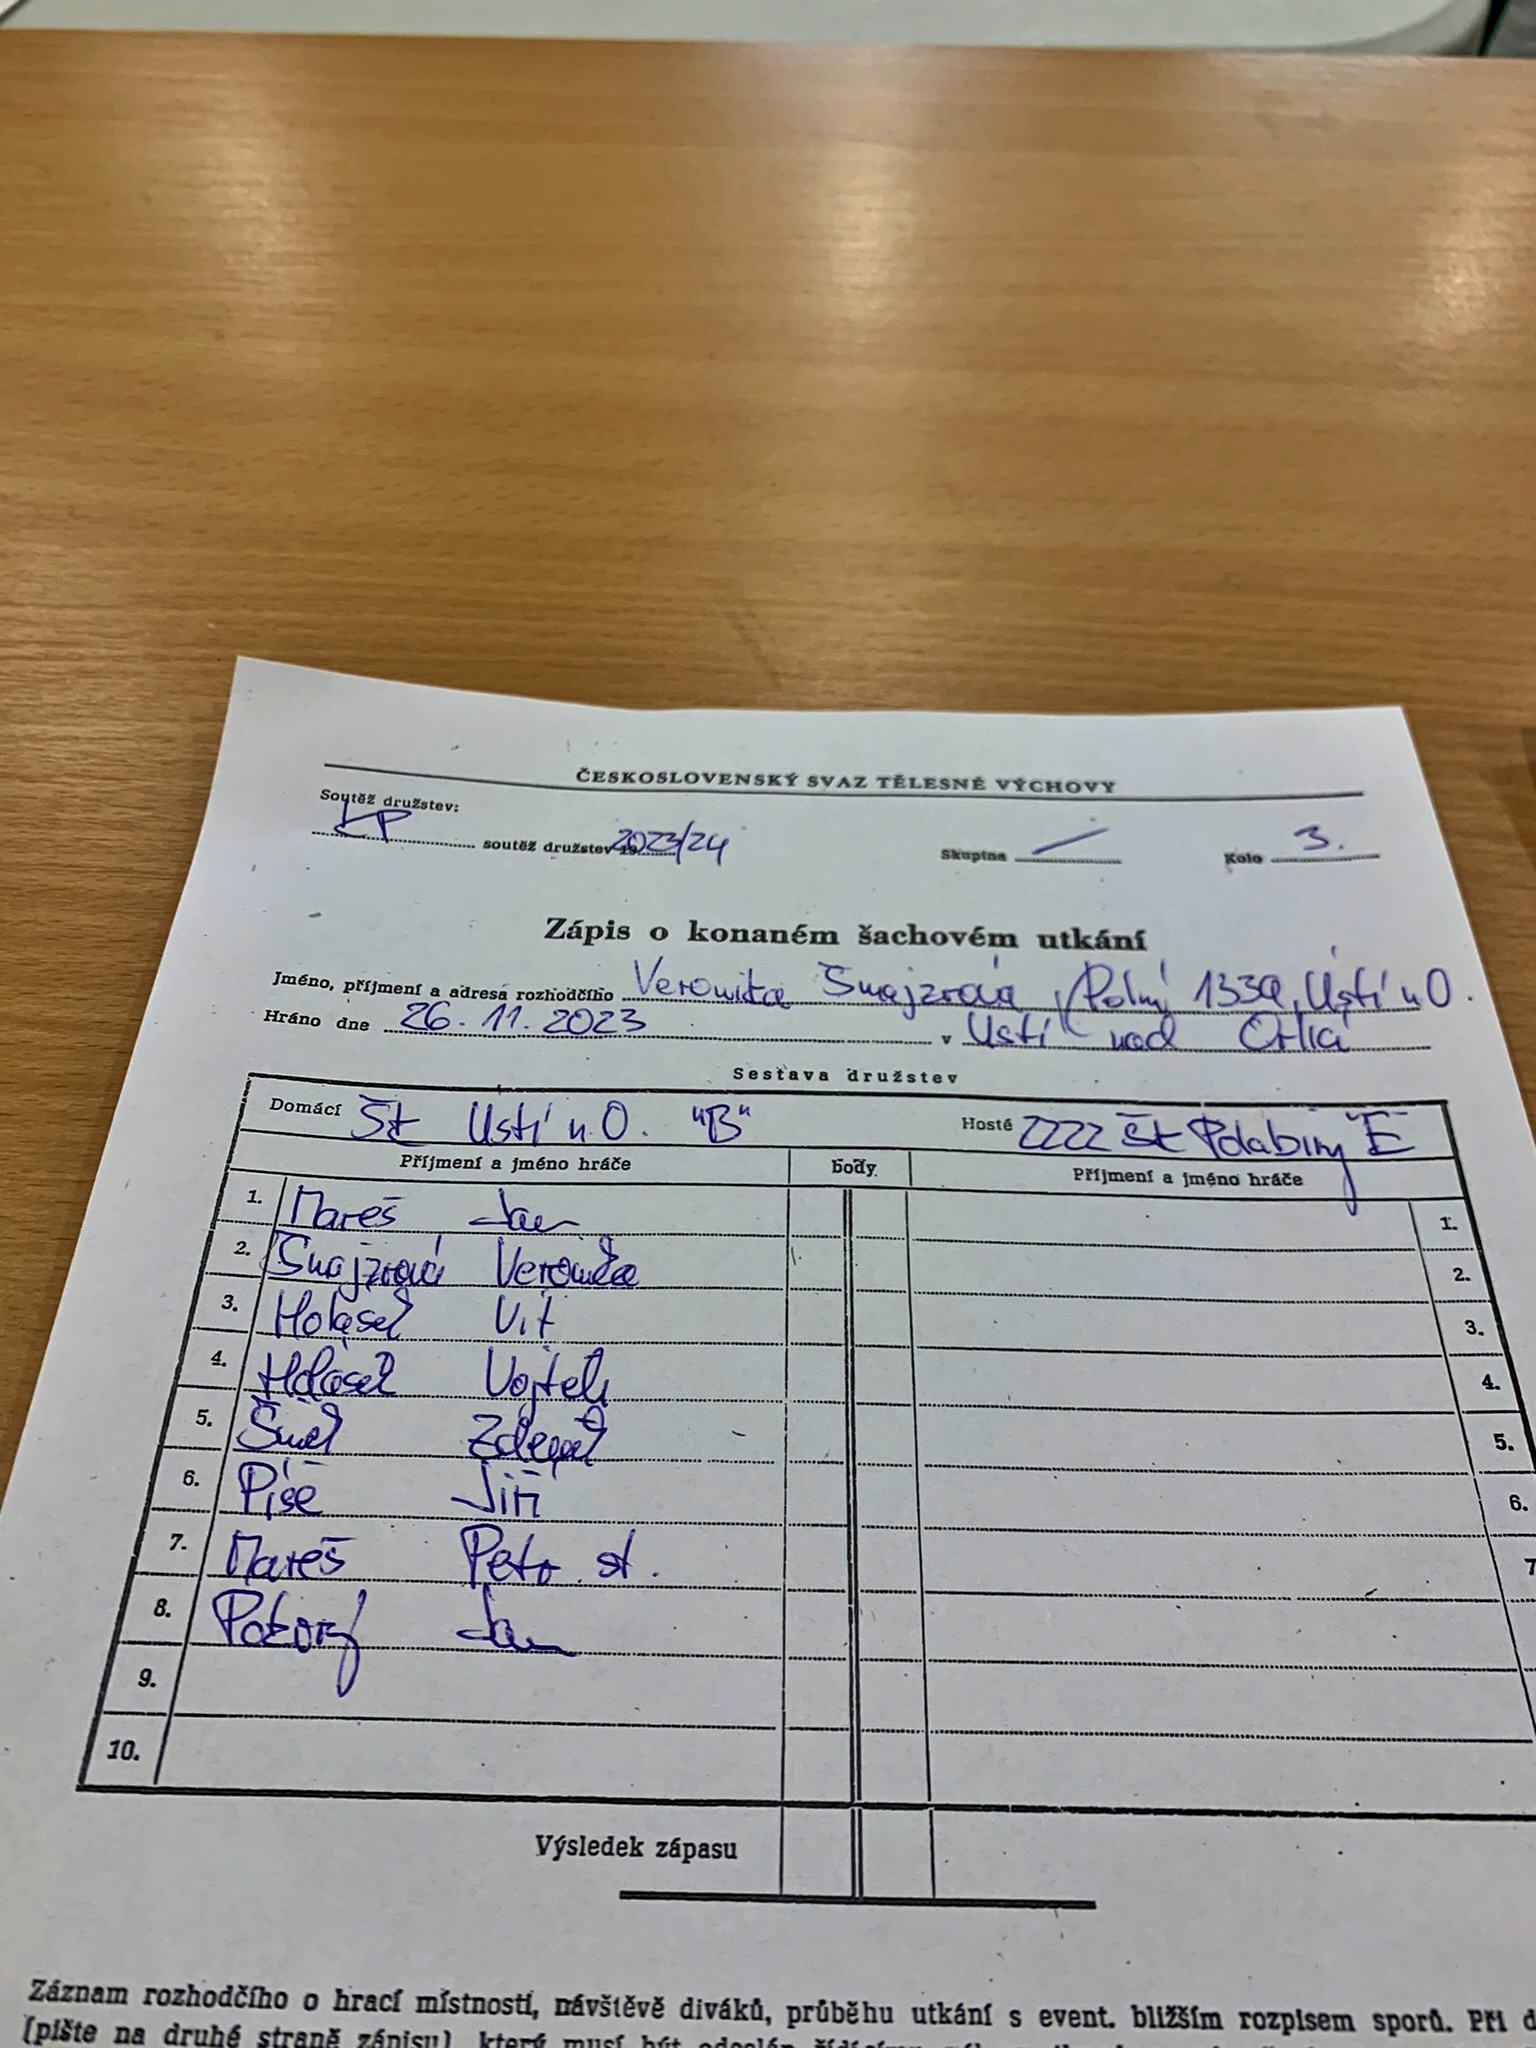 ČESKOSLOVENSKÝ SVAZ TĚLESNÉ VÝCHOVY
Soutěž družstev:
KP soutěž družstev 19 2023/24 Skupina / Kolo 3.
Zápis o konaném šachovém utkání
Jméno, příjmení a adresa rozhodčího Veronika Šmajzrová, Polní 1339, Ústí n O.
Hráno dne 26.11.2023 v Ústí nad Orlicí
Sestava družstev
Domácí ŠK Ústí n. O. "B" Hosté 2222 ŠK Polabiny "E"
Příjmení a jméno hráče body Příjmení a jméno hráče
1. Mareš Jan 1.
2. Šmajzrová Veronika 2.
3. Holásek Vít 3.
4. Holásek Vojtěch 4.
5. Zdeněk 5.
6. Píše Jiří 6.
7. Mareš Petr st. 7
8. Pokorný Jan
9.
10.
Výsledek zápasu
Záznam rozhodčího o hrací místnosti, návštěvě diváků, průběhu utkání s event. bližším rozpisem sporů. Při d
(pište na druhé straně zápisu), který musí být